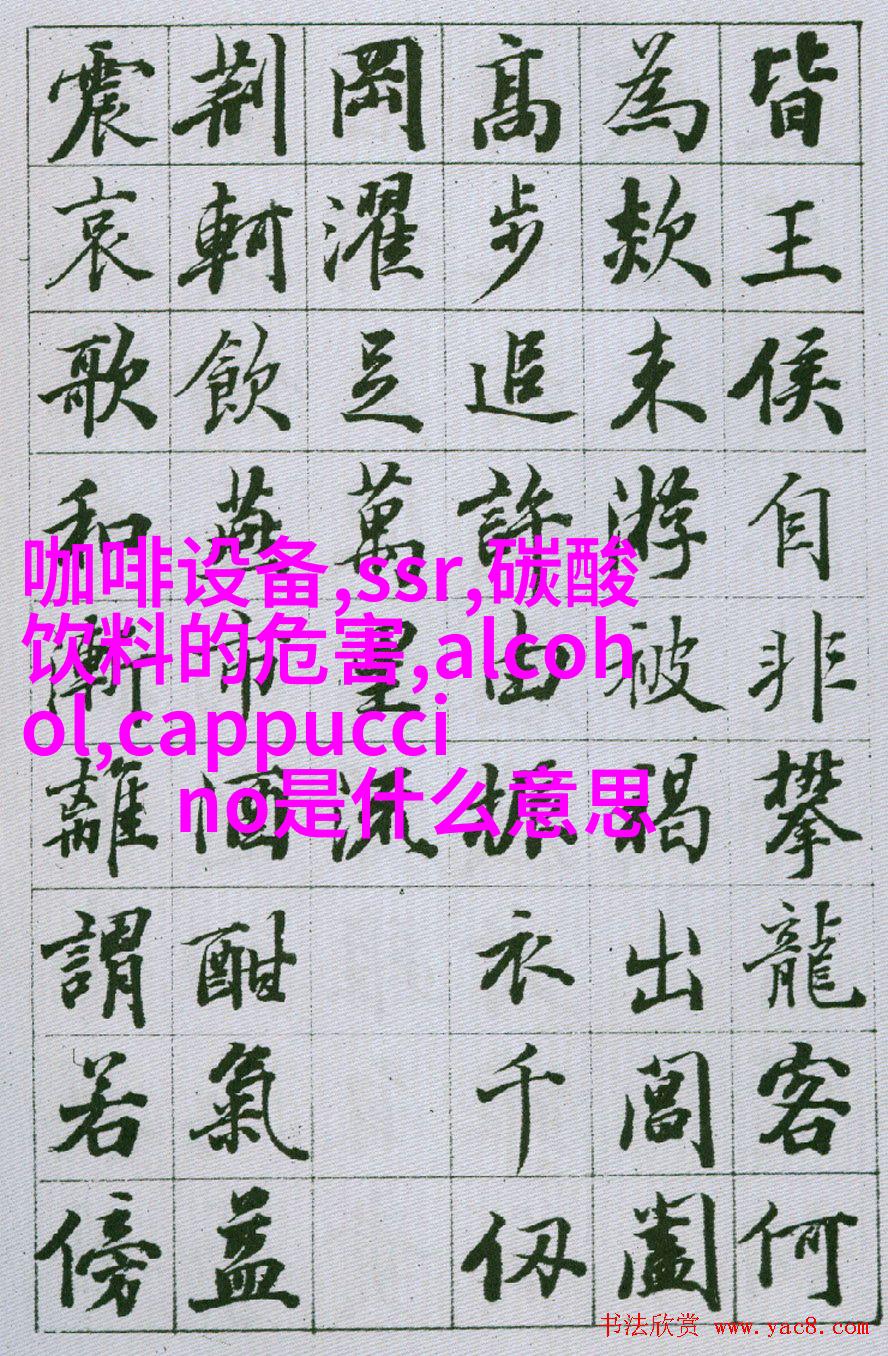 皆王侯自非攀龍客何
為欻来游被褐出閶闔
高步追許由振衣千仞
岡濯足萬里流
荆軻飲燕市酒酣氣益
震哀歌和漸離謂若傍
咖啡设备,ssr,碳酸
饮料的危害,alcoh
ol,cappucci
no是什么意思
书法欣赏 www.yac8.com